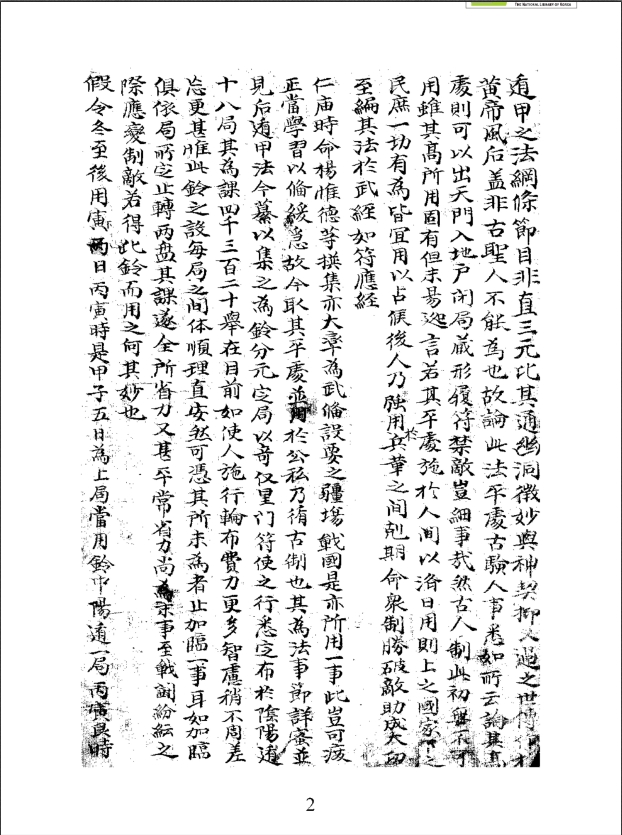 THE NATIONAL LIBRARY OF KOREA
遁甲之法綱條節目非直三元比其通幽洞微妙與神契抑又過之世傳
黃帝風后盖非古聖人不能為也故論此法平處古驗人事悉如所云論其高
處則可以出天門入地戶閉局蔵形履符禁敵豈細事㢤然古人制此初無不可
用雖其高所用固有但未易遽言若其平處施於人間以洛日用則上之國家下之
民庶一切有為皆宜用以占候後人乃強用於兵革之間剋期命衆制勝破敵助成大功
至編其法於武經如符應經
仁庙時命楊惟德等撰集亦大率為武俻設要之疆塲戰國是亦所用一事此豈可癈
正當學習以俻緩急故今取其平處並用於公私乃循古制也其為法事節詳蜜並
見后遁甲法今纂以集之為鈴分元定局以竒仪星门符使之行悉定布於陰陽遁
十八局其為課四千三百二十舉在目前如使人施行輪布費力更多智慮稍不周差
忒更甚惟此鈴之設每局之间体順理直安然可憑其所未為者止加臨一事耳如加臨
俱依局所定止轉两盘其課遂全所省力又甚平常省力尚為末事至戰鬪紛紜之
際應變制敵若得此鈴而用之何其妙也
假令冬至後用寅日丙寅時是甲子五日為上局當用鈴中陽遁一局丙寅艮時
2